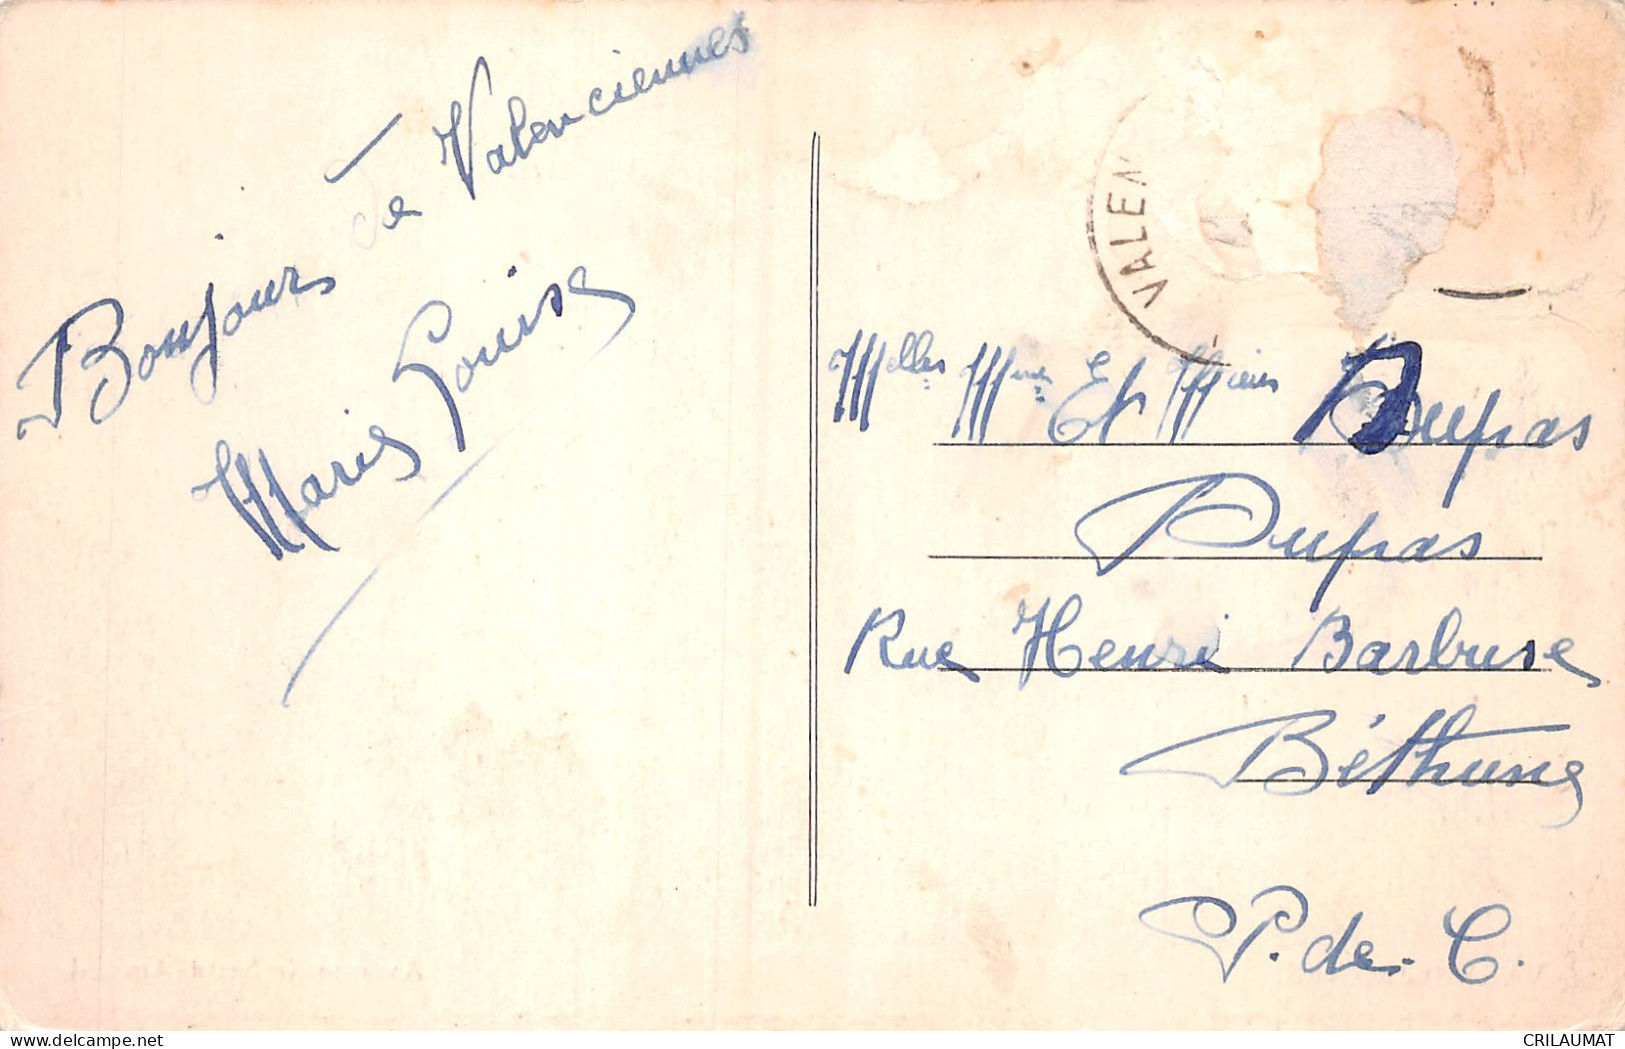 Bonjours de Valenciennes
Marie Louise
VALEN
Melles Mme Et Mieur Dupas
Dupas
Rue Henri Barbuse
Béthune
P. de. C.
delcampe.net
CRILAUMAT